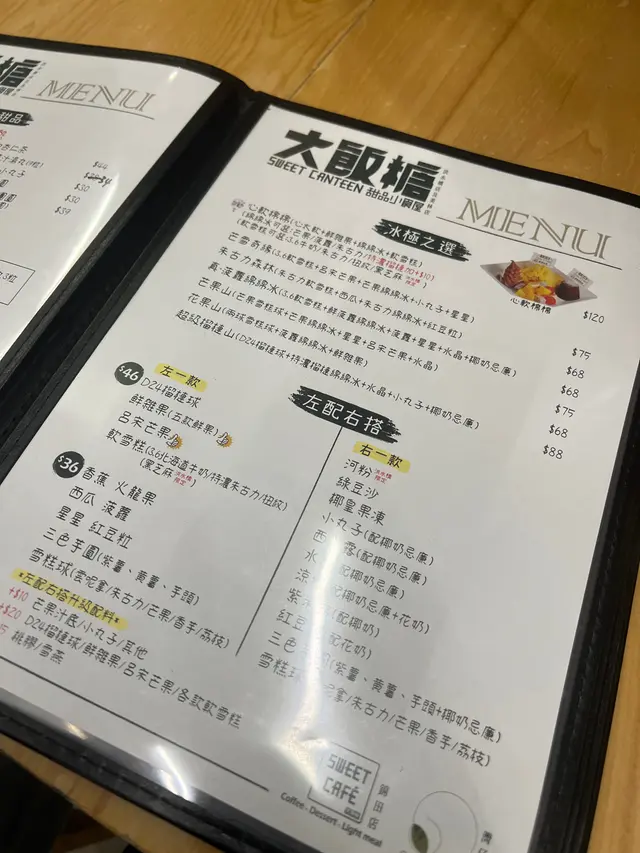 MENU
甜品
$44
$30
$30
$39
大飯糖
SWEET CANTEEN 甜品小飯屋
MENU
冰極之選
心軟棉棉(心太軟+鮮雜果+綿綿冰+軟雪糕) $120
(綿綿冰可選:芒果/菠蘿/朱古力/特濃榴槤加+$10)
(軟雪糕可選:3.6牛奶/朱古力/扭紋/黑芝麻)
心軟棉棉
芒雪奇緣(3.6軟雪糕+呂宋芒果+芒果綿綿冰+小丸子+星星) $75
朱古力森林(朱古力軟雪糕+西瓜+朱古力綿綿冰+紅豆粒) $68
真·菠蘿綿綿冰(3.6軟雪糕+鮮菠蘿綿綿冰+菠蘿+星星+水晶+椰奶忌廉) $68
芒果山(芒果雪糕球+芒果綿綿冰+星星+呂宋芒果+水晶) $75
花果山(兩球雪糕球+菠蘿綿綿冰+鮮雜果) $68
超級榴槤山(D24榴槤球+特濃榴槤綿綿冰+水晶+小丸子+椰奶忌廉) $88
左配右搭
$46
左一款
D24榴槤球
鮮雜果(五款鮮果)
呂宋芒果
軟雪糕(3.6北海道牛奶/特濃朱古力/扭紋)
(黑芝麻)
$36
香蕉 火龍果
西瓜 菠蘿
星星 紅豆粒
三色芋圓(紫薯、黃薯、芋頭)
雪糕球(雲呢拿/朱古力/芒果/香芋/荔枝)
*左配右搭升級配料*
+$10 芒果汁底/小丸子/其他
+$20 D24榴槤球/鮮雜果/呂宋芒果/各款軟雪糕
桃膠/雪燕
右一款
河粉
綠豆沙
椰皇果凍
小丸子(配椰奶忌廉)
(配椰奶忌廉)
(配椰奶忌廉)
(配椰奶忌廉+花奶)
(配椰奶)
紅豆 配花奶)
三色 (紫薯、黃薯、芋頭+椰奶忌廉)
雪糕球 呢拿/朱古力/芒果/香芋/荔枝)
SWEET
CAFÉ
Coffee · Dessert · Light meal